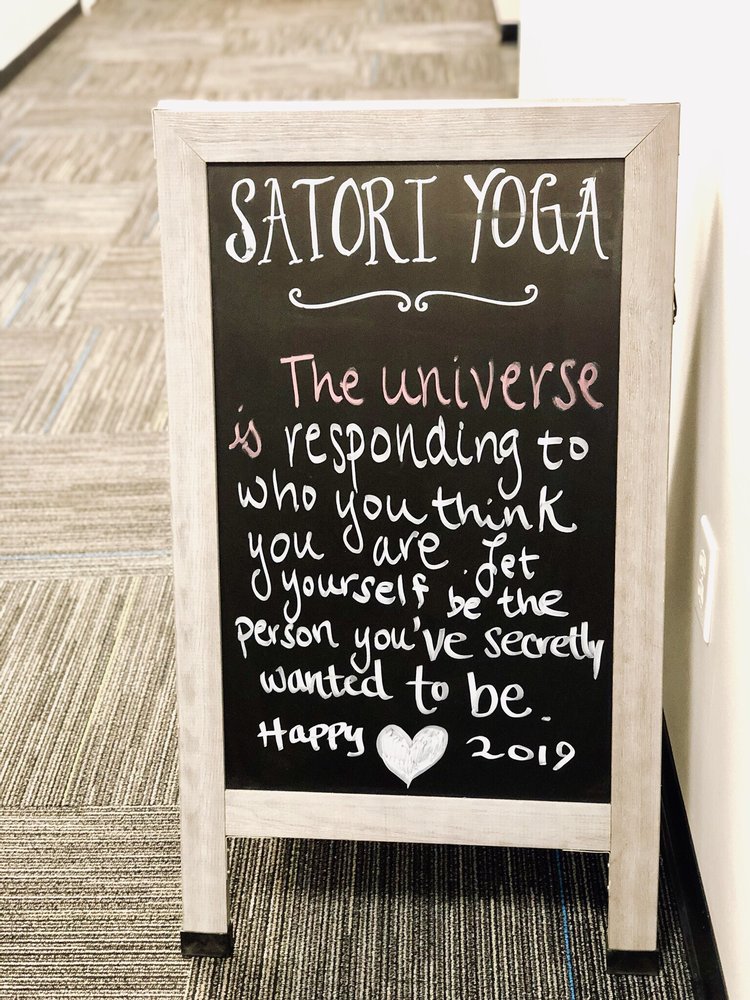 SATORI YOGA
The universe
is responding to
who you think
you are. Let
yourself be the
person you've secretly
wanted to be.
Happy 2019